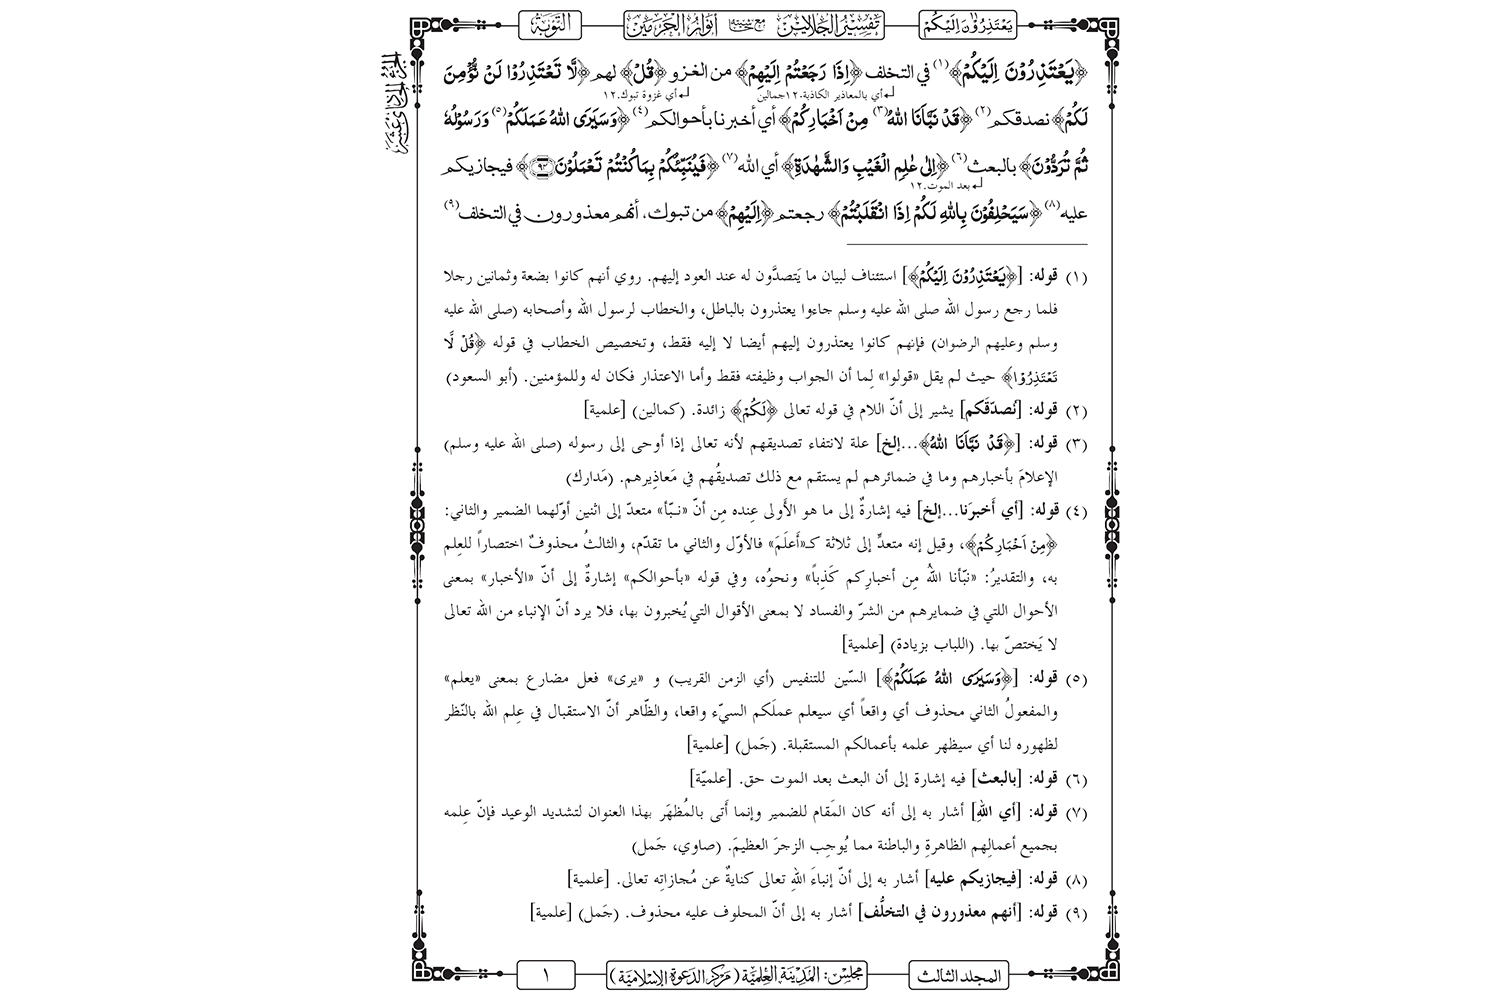 يَعْتَذِرُوْنَ اِلَيْكُمْ
تفسير الجلالين مع حاشيته أنوار الحرمين
التَّوْبَة
الجزء الحادي عشر
﴿يَعْتَذِرُوْنَ اِلَيْكُمْ﴾(١) في التخلف ﴿اِذَا رَجَعْتُمْ اِلَيْهِمْ﴾ من الغزو ﴿قُلْ﴾ لهم ﴿لَّا تَعْتَذِرُوْا لَنْ نُّؤْمِنَ
أي بالمعاذير الكاذبة.١٢جمالين
أي غزوة تبوك.١٢
لَكُمْ﴾ نصدقكم(٢) ﴿قَدْ نَبَّاَنَا اللهُ(٣) مِنْ اَخْبَارِكُمْ﴾ أي أخبرنا بأحوالكم(٤) ﴿وَسَيَرَى اللهُ عَمَلَكُمْ(٥) وَرَسُوْلُهٗ
ثُمَّ تُرَدُّوْنَ﴾ بالبعث(٦) ﴿اِلٰى عٰلِمِ الْغَيْبِ وَالشَّهٰدَةِ﴾ أي الله(٧) ﴿فَيُنَبِّئُكُمْ بِمَا كُنْتُمْ تَعْمَلُوْنَ ۝٩٤﴾ فيجازيكم
بعد الموت.١٢
عليه(٨) ﴿سَيَحْلِفُوْنَ بِاللهِ لَكُمْ اِذَا انْقَلَبْتُمْ﴾ رجعتم ﴿اِلَيْهِمْ﴾ من تبوك، أنهم معذورون في التخلف(٩)
(١) قوله: [﴿يَعْتَذِرُوْنَ اِلَيْكُمْ﴾] استئناف لبيان ما يَتصدَّون له عند العود إليهم. روي أنهم كانوا بضعة وثمانين رجلا
فلما رجع رسول الله صلى الله عليه وسلم جاءوا يعتذرون بالباطل، والخطاب لرسول الله وأصحابه (صلى الله عليه
وسلم وعليهم الرضوان) فإنهم كانوا يعتذرون إليهم أيضا لا إليه فقط، وتخصيص الخطاب في قوله ﴿قُلْ لَّا
تَعْتَذِرُوْا﴾ حيث لم يقل «قولوا» لِما أن الجواب وظيفته فقط وأما الاعتذار فكان له وللمؤمنين. (أبو السعود)
(٢) قوله: [نُصدّقَكم] يشير إلى أنّ اللام في قوله تعالى ﴿لَكُمْ﴾ زائدة. (كمالين) [علمية]
(٣) قوله: [﴿قَدْ نَبَّاَنَا اللهُ﴾...إلخ] علة لانتفاء تصديقهم لأنه تعالى إذا أوحى إلى رسوله (صلى الله عليه وسلم)
الإعلامَ بأخبارهم وما في ضمائرهم لم يستقم مع ذلك تصديقُهم في مَعاذِيرهم. (مَدارك)
(٤) قوله: [أي أَخبرَنا...إلخ] فيه إشارةٌ إلى ما هو الأَولى عِنده مِن أنّ «نبّأ» متعدّ إلى اثنين أوّلهما الضمير والثاني:
﴿مِنْ اَخْبَارِكُمْ﴾، وقيل إنه متعدٍّ إلى ثلاثة كـ«أَعلَمَ» فالأوّل والثاني ما تقدّم، والثالثُ محذوفٌ اختصاراً للعِلم
به، والتقديرُ: «نبّأنا اللهُ مِن أخبارِكم كَذِباً» ونحوُه، وفي قوله «بأحوالكم» إشارةٌ إلى أنّ «الأخبار» بمعنى
الأحوال اللتي في ضمايرهم من الشرّ والفساد لا بمعنى الأقوال التي يُخبرون بها، فلا يرد أنّ الإنباء من الله تعالى
لا يَختصّ بها. (اللباب بزيادة) [علمية]
(٥) قوله: [﴿وَسَيَرَى اللهُ عَمَلَكُمْ﴾] السّين للتنفيس (أي الزمن القريب) و «يرى» فعل مضارع بمعنى «يعلم»
والمفعولُ الثاني محذوف أي واقعاً أي سيعلم عملَكم السيّء واقعا، والظّاهر أنّ الاستقبال في عِلم الله بالنّظر
لظهوره لنا أي سيظهر علمه بأعمالكم المستقبلة. (جَمل) [علمية]
(٦) قوله: [بالبعث] فيه إشارة إلى أن البعث بعد الموت حق. [علميّة]
(٧) قوله: [أي اللهِ] أشار به إلى أنه كان المَقام للضمير وإنما أتى بالمُظهَر بهذا العنوان لتشديد الوعيد فإنّ عِلمه
بجميع أعمالِهم الظاهرةِ والباطنة مما يُوجِب الزجرَ العظيمَ. (صاوي، جَمل)
(٨) قوله: [فيجازيكم عليه] أشار به إلى أنّ إنباءَ اللهِ تعالى كنايةٌ عن مُجازاتِه تعالى. [علمية]
(٩) قوله: [أنهم معذورون في التخلُّف] أشار به إلى أنّ المحلوف عليه محذوف. (جَمل) [علمية]
المجلد الثالث
مجلس: المدينة العلمية (مركز الدعوة الإسلامية)
١